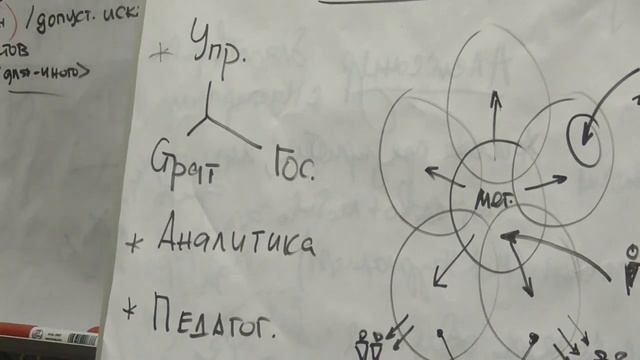 /допуст. иск.
<для-иного>
* Упр.
Страт Гос.
* Аналитика
* Педагог.
мет.